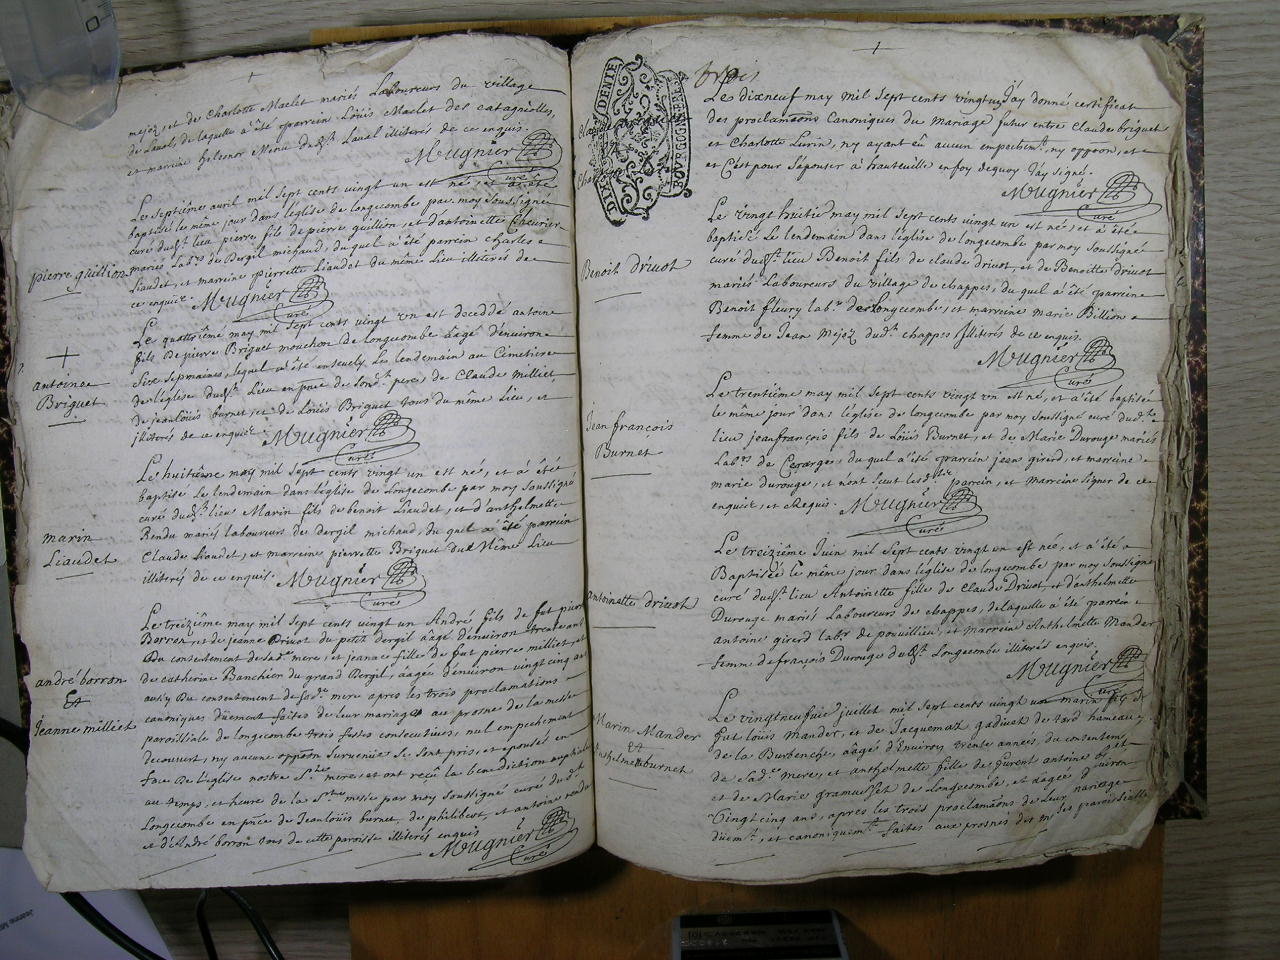 mejoz, et de Charlotte Maclet mariés Laboureurs du village
de Lavols delaquelle a été parrein Loüis Maclet des catagnolles,
et marrine heleonor Menu dud.t Lavol illiterés de ce enquis.
Mugnier
Curé
Le Septiéme avril mil Sept cents vingt un est né, et a été
baptisé le même jour dans l'église de longecombe par moy soussigné
curé dud.t lieu pierre fils de pierre guillion, et d'antoinette Chevrier
mariés Lab.rs de Dergil michaud, du quel a été parrein charles
Liaudet, et marrine pierrette Liaudet du même Lieu illiterés de
ce enquis. Mugnier
Curé
pierre guillion
Le quattriéme may mil Sept cents vingt un est decedé antoine
fils de pierre Briguet mouchon de Longecombe aagé d'environ
Six Sepmaines, lequel a été ensevely Le lendemain au Cimetiere
de l'église dud.t Lieu en pñce de Son d.t pere, de Claude Milliet,
de jeanloüis burnet, et de Loüis Briguet tous du même Lieu, et
illiterés de ce enquis. Mugnier
Curé
antoine
Briguet
Le huitiéme may mil Sept cents vingt un est né, et a été
baptisé Le lendemain dans l'église de Longecombe par moy Soussigné
curé dud.t lieu Marin fils de benoit Liaudet, et d'anthelmette
Rendu mariés laboureurs de dergil michaud, du quel a été parrein
Claude Liaudet, et marreine pierrette Briguet du Même Lieu
illiterés de ce enquis. Mugnier
Curé
marin
Liaudet
Le treiziéme may mil Sept cents vingt un André fils de fut pierre
Borron, et de jeanne Drivot du petit dergil aagé d'environ trente ans
du consentement de sad.e mere, et jeanne fille de fut pierre milliet, et
de catherine Banchien du grand Dergil, aagée d'environ vingt cinq ans
aussy du consentement de sad.e mere apres les trois proclamations
canoniques düement faites de leur mariage au prosne de la messe
paroissiale de longecombe trois festes consecutives, nul empechement
decouvert, ny aucune oppõon survenüe se sont pris, et épousés en
face de l'église nostre S.te mere, et ont reçu la benediction nuptiale
au temps, et heure de la S.te messe par moy soussigné curé dud.t
Longecombe en pñce de Jeanloüis burnet, de philibert, et antoine rendu
et d'André borron tous de cette paroisse illiterés enquis.
Mugnier
Curé
andré borron
Et
Jeanne milliet
DIX DENIE
BOURGOGNE
Le dixneuf may mil Sept cents vingt un J'ay donné certificat
des proclamõons Canoniques du mariage futur entre Claude briguet
et Charlotte Lurin, n'y ayant eü aucun empechem.t ny oppõon, et
et C'est pour S'epouser à hauteville en foy dequoy J'ay signé.
Mugnier
Curé
Le vingt huitié may mil Sept cents vingt un est né, et a été
baptisé Le lendemain dans l'église de longecombe par moy soussigné
curé dud.t lieu Benoit fils de claude drivot, et de Benoitte drivot
mariés Laboureurs du village de chappes, du quel a été parrein
Benoit fleury lab.r de Longecombe, et marreine marie Billion
femme de Jean Mejoz dud.t chappes illiterés de ce enquis.
Mugnier
Curé
Benoit Drivot
Le trentiéme may mil Sept cents vingt un est né, et a été baptisé
le même jour dans l'église de longecombe par moy soussigné curé dud.t
lieu jeanfrançois fils de Loüis Burnet, et de Marie Durouge mariés
Lab.rs de Cerarges, du quel a été parrein jean girerd, et marreine
marie durouge, et n'ont sceut lesd.ts parein, et marreine signer de ce
enquis, et Requis. Mugnier
Curé
Jean françois
Burnet
Le treiziéme Juin mil Sept cents vingt un est né, et a été
Baptisée le même jour dans l'église de longecombe par moy soussigné
curé dud.t lieu Antoinette fille de Claude Drivot, et d'anthelmette
Durouge mariés Laboureurs de chappes, delaquelle a été parrein
antoine girerd labr de pouvillieu, et marreine Anthelmette Mander
femme de françois Durouge dud.t Longecombe illiterés enquis.
Mugnier
Curé
antoinette drivot
Le vingtneufvié juillet mil Sept cents vingt un marin fils de
fut loüis Mander, et de Jacquemaz gadivet de tard hameau
de la Burbenche, aagé d'environ trente années, du consentem.t
de sad.e mere, et anthelmette fille de furent antoine
et de Marie gramusset de Longecombe, et aagée d'airon
Vingt cinq ans, apres les trois proclamãons de Leur mariage
düem.t, et canoniquem.t faites aux prosnes des paroissiales
Marin Mander
Et
Anthelmette burnet